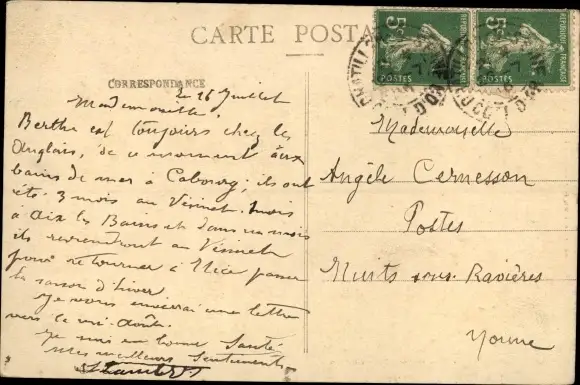 CARTE POSTA
CORRESPONDANCE
Le 26 Juillet
Mademoiselle
Berthe est toujours chez les
Anglais, de ce moment aux
bains de mer à Cabourg; ils ont
été 3 mois au Vésinet. 1 mois
à Aix les Bains et dans un mois
ils reviendront au Vésinet
pour retourner à Nice passer
la saison d'hiver.
Je vous enverrai une lettre
vers la mi-août.
Je suis en bonne santé
mes meilleurs sentiments
5c
POSTES
REPUBLIQUE FRANCAISE
5c
POSTES
REPUBLIQUE FRANCAISE
CHATILLON
D'OR
D'OR
Mademoiselle
Angèle Cernesson
Postes
Nuits sous Ravières
Yonne